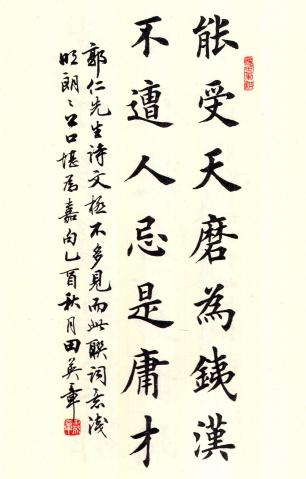 能受天磨為銕漢
不遭人忌是庸才
郭仁先生诗文極不多見而此聯词意淺
明朗〻上口堪为嘉句乙酉秋月田英章